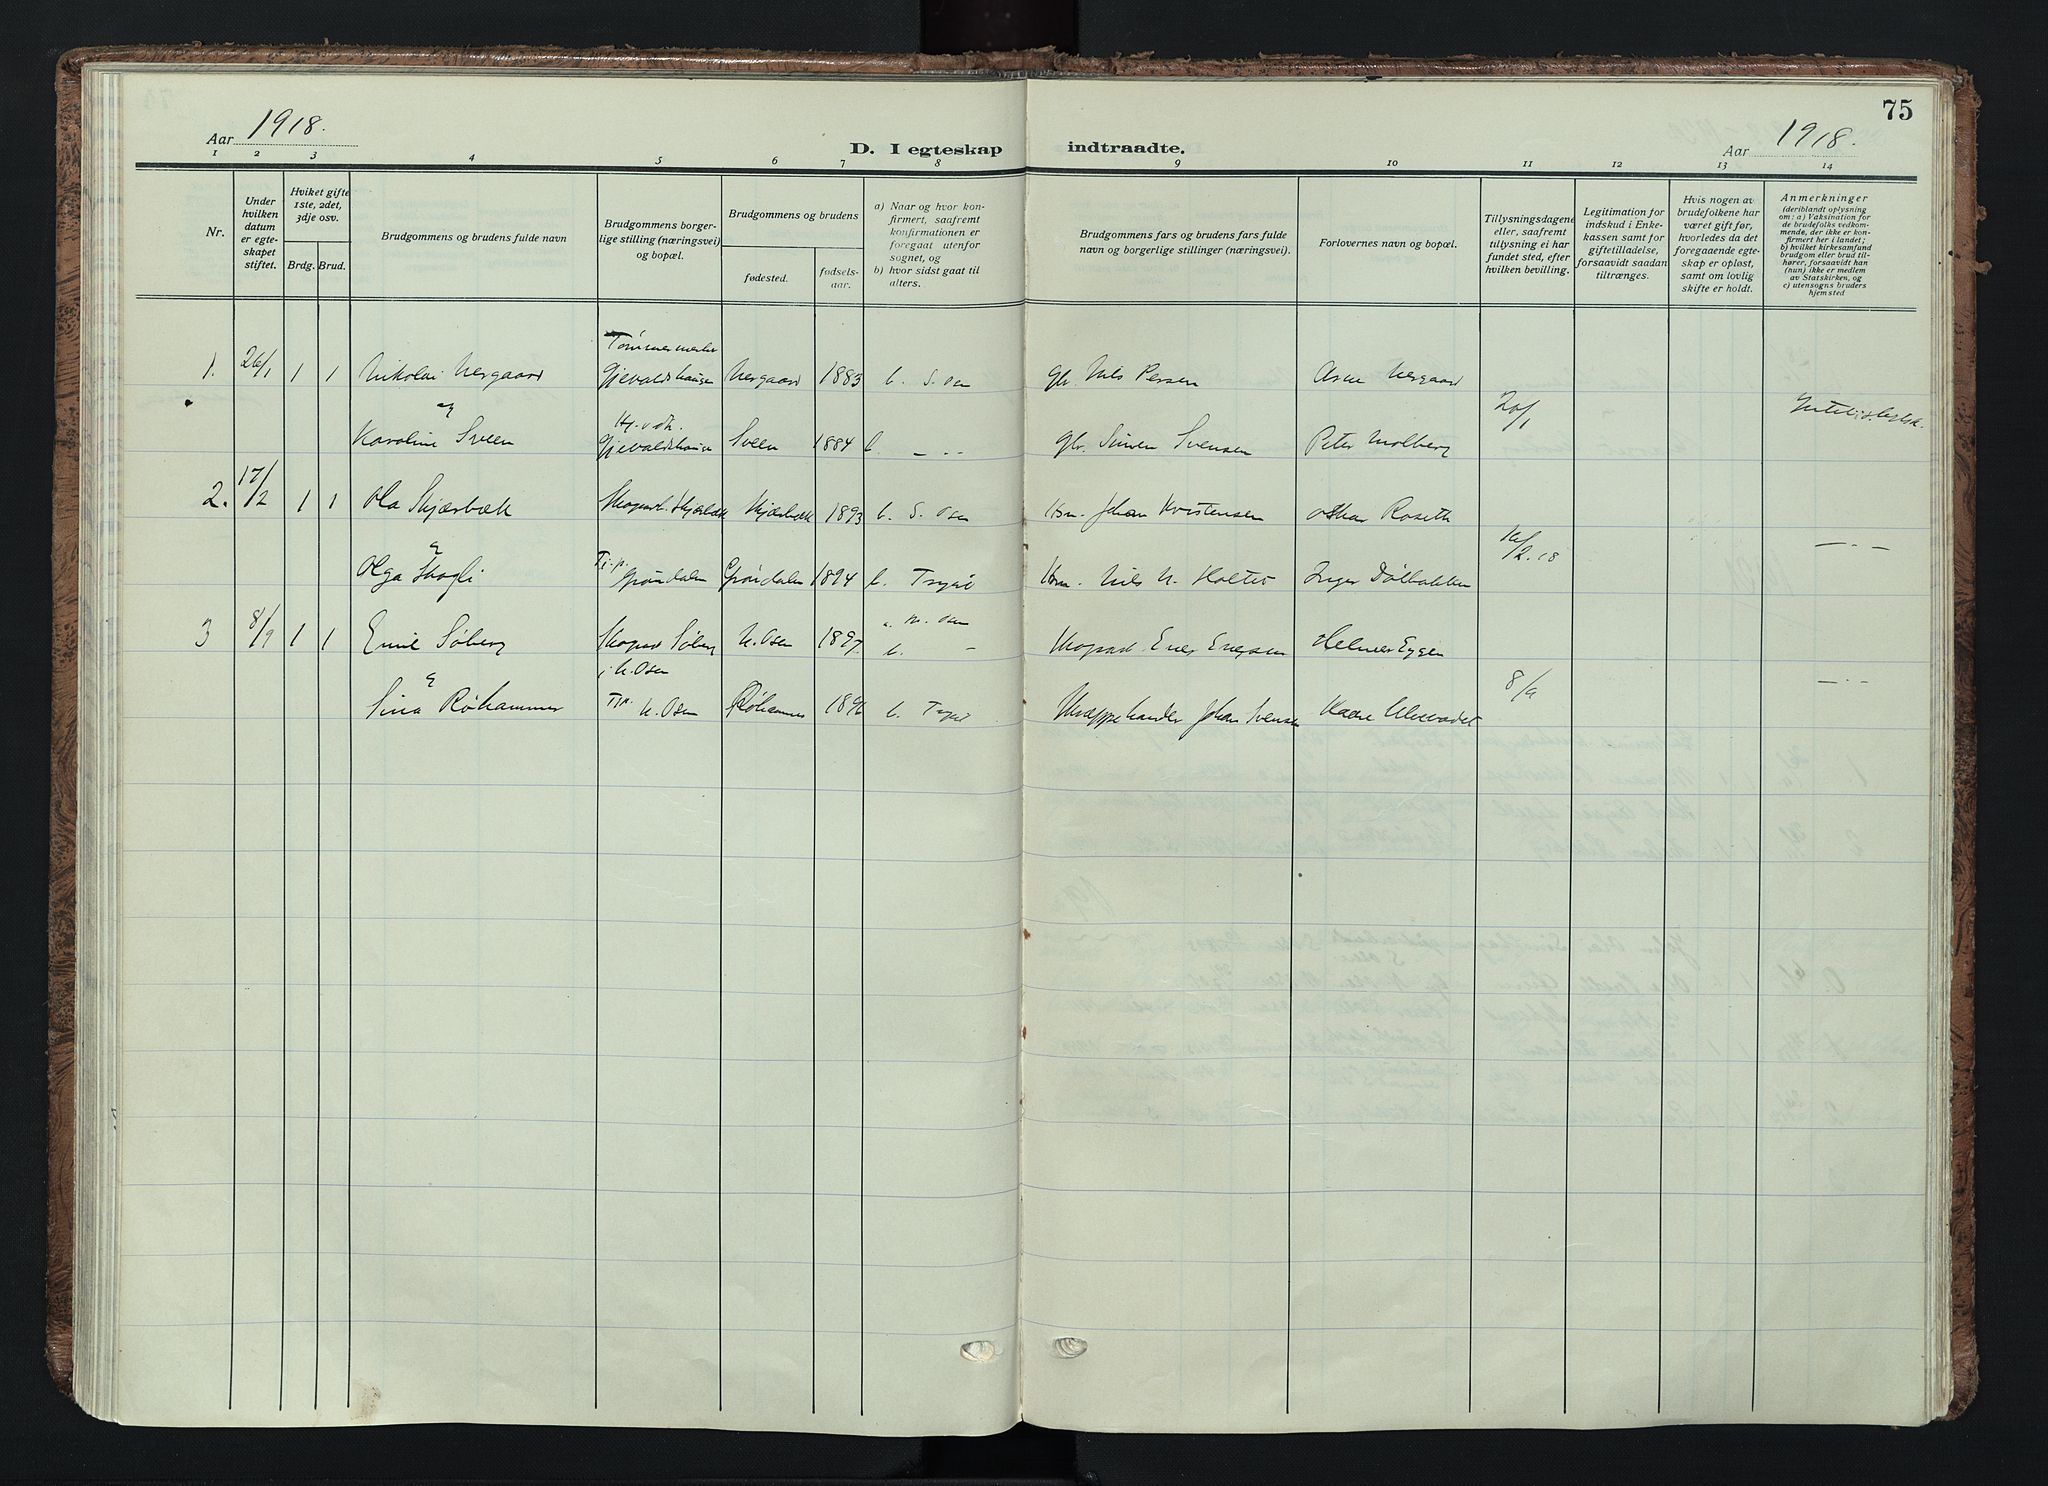 75
Aar 1918.
D. I egteskap indtraadte.
Aar 1918.
1 2 3 4 5 6 7 8 9 10 11 12 13 14
Nr.
Under
hvilken
datum
er egte-
skapet
stiftet.
Hviket gifte
1ste, 2det,
3dje osv.
Brdg. Brud.
Brudgommens og brudens fulde navn
Brudgommens borger-
lige stilling (næringsvei)
og bopæl.
Brudgommens og brudens
fødested.
fødsels-
aar.
a) Naar og hvor kon-
firmert, saafremt
konfirmationen er
foregaat utenfor
sognet, og
b) hvor sidst gaat til
alters.
Brudgommens fars og brudens fars fulde
navn og borgerlige stillinger (næringsvei).
Forlovernes navn og bopæl.
Tillysningsdagene
eller, saafremt
tillysning ei har
fundet sted, efter
hvilken bevilling.
Legitimation for
indskud i Enke-
kassen samt for
giftetilladelse,
forsaavidt saadan
tiltrænges.
Hvis nogen av
brudefolkene har
været gift før,
hvorledes da det
foregaaende egte-
skap er opløst,
samt om lovlig
skifte er holdt.
Anmerkninger
(deriblandt oplysning
om: a) Vaksination for
de brudefolks vedkom-
mende, der ikke er kon-
firmert her i landet;
b) hvilket kirkesamfund
brudgom eller brud til-
hører, forsaavidt han
(hun) ikke er medlem
av Statskirken, og
c) utensogns bruders
hjemsted
1. 26/1 1 1 Nikolai Nergaard Gjevaldshaugen Nergaard 1883 b. S. Osen Gbr. Nils Persen Arne Nergaard
og 20/1
Karoline Sveen Gjevaldshaugen Sveen 1884 b. — „ — Gbr. Simen Svensen Peter Molberg
2. 17/2 1 1 Ola Skjærbæk Skogsarb. Skjærbæk Skjærbæk 1893 b. S. Osen Hsm. Johan Kristensen Oskar Roseth
& 10/2.18 — „ —
Olga Skogli Tj.p. Grøndalen Grøndalen 1894 b. Trysil Hsm. Nils N. Holter Inger Dølbakken
3 8/9 1 1 Emil Søberg Skogsarb Søberg N. Osen 1897. a. N. Osen Skogsarb. Helmer Eggen
i N. Osen b. —
& 8/9 — „ —
Sina Røhammer Tjp. N. Osen Røhammer b. Trysil Johan Svensen Kaare